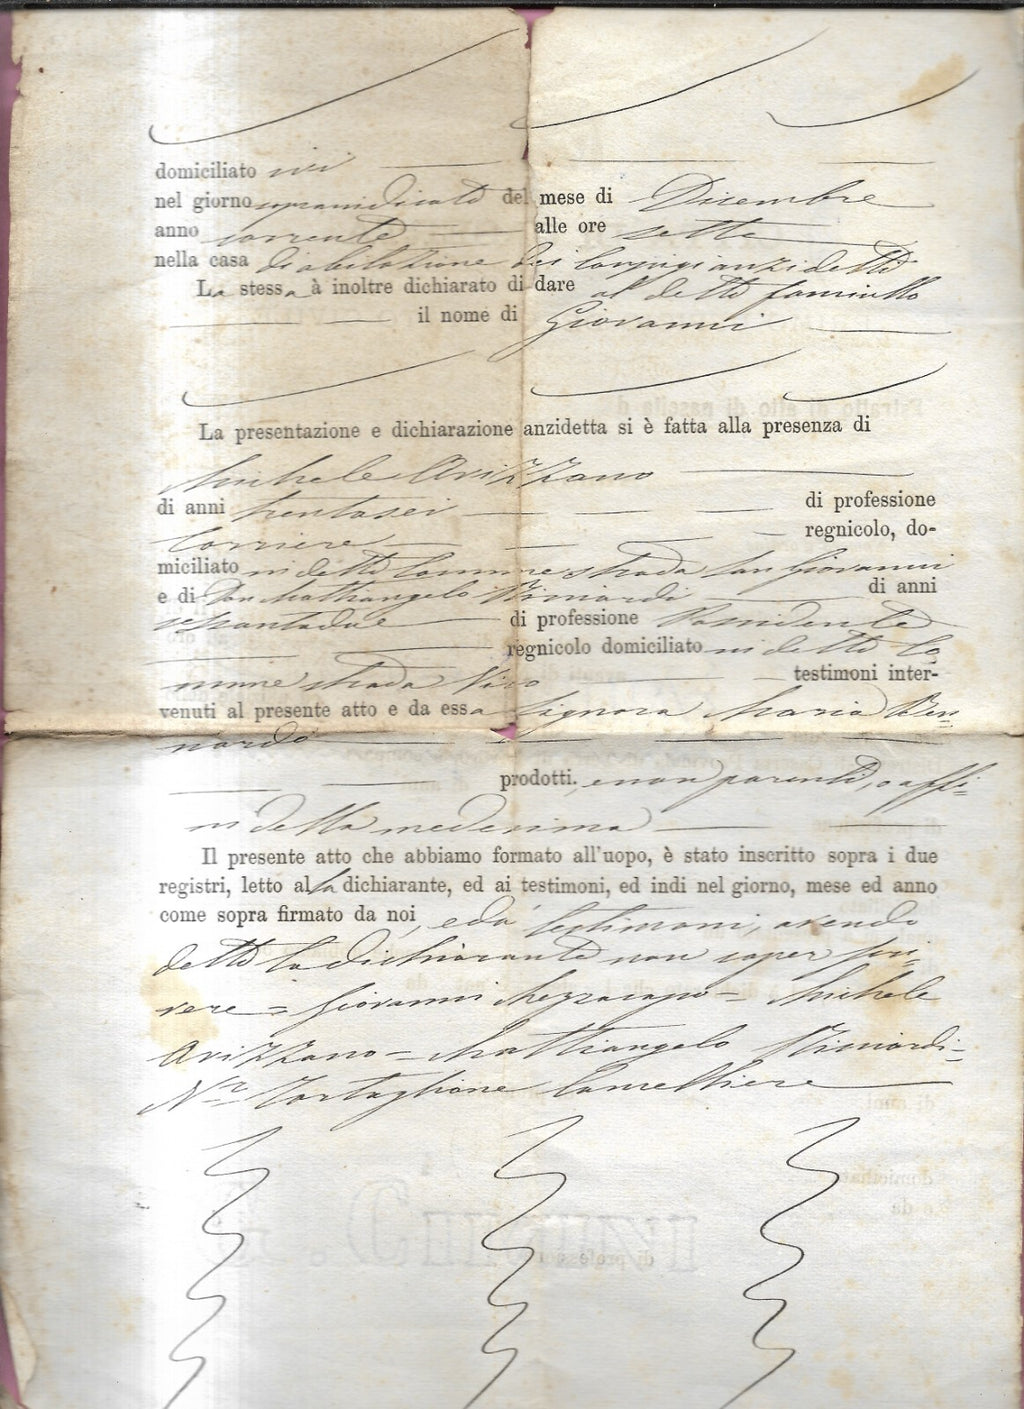 domiciliato ivi
nel giorno sopraindicato del mese di Dicembre
anno corrente alle ore sette
nella casa di abitazione dei Conjugi anzidetti
La stessa à inoltre dichiarato di dare al detto fanciullo
il nome di Giovanni
La presentazione e dichiarazione anzidetta si è fatta alla presenza di
Michele Avizzano
di anni trentasei di professione
Corriere regnicolo, do-
miciliato in detto Comune strada San Giovanni
e di Don Matthangelo di anni
sessantadue di professione Possidente
regnicolo domiciliato in detto Co
mune strada Vico testimoni inter-
venuti al presente atto e da essa Signora Maria
nardo
prodotti, e non parenti, o affi=
ni della medesima
Il presente atto che abbiamo formato all'uopo, è stato inscritto sopra i due
registri, letto alla dichiarante, ed ai testimoni, ed indi nel giorno, mese ed anno
come sopra firmato da noi, e da' testimoni, avendo
detto la dichiarante non saper scri=
vere = Giovanni Mezzacapo = Michele
Avizzano = Mattiangelo
Tartaglione Cancelliere